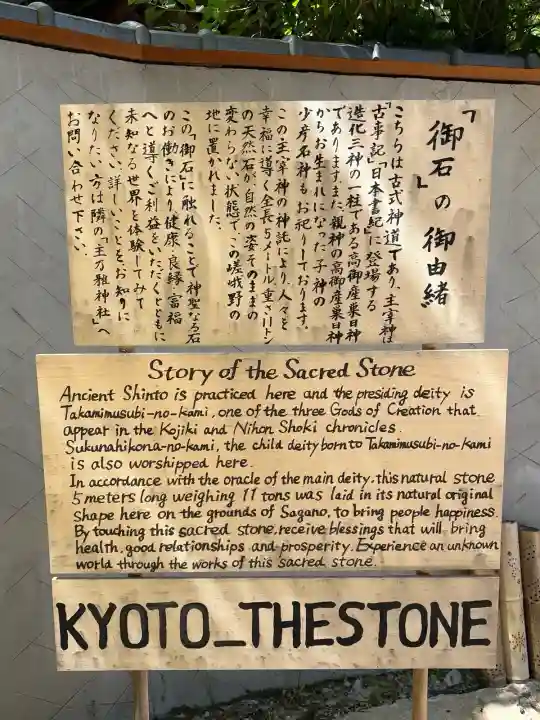 「御石」の御由緒
こちらは古式神道であり、主宰神は
「古事記」「日本書紀」に登場する
造化三神の一柱である高御産巣日神
であります。また、親神の高御産巣日神
からお生まれになった子神の
少彦名神もお祀りしております。
この主宰神の神託により、人々を
幸福に導く全長5メートル、重さ11トン
の天然石が自然の姿そのままの
変わらない状態で、この嵯峨野の
地に置かれました。
この「御石」に触れることで神聖なる石
のお働きにより、健康、良縁、富福
へと導くご利益をいただくとともに
未知なる世界を体験してみて
ください。詳しいことをお知りに
なりたい方は隣の「主乃雅神社」へ
お問い合わせ下さい。
Story of the Sacred Stone
Ancient Shinto is practiced here and the presiding deity is
Takamimusubi-no-kami, one of the three Gods of Creation that
appear in the Kojiki and Nihon Shoki chronicles.
Sukunahikona-no-kami, the child deity born to Takamimusubi-no-kami
is also worshipped here.
In accordance with the oracle of the main deity, this natural stone
5 meters long weighing 11 tons was laid in its natural original
shape here on the grounds of Sagano, to bring people happiness.
By touching this sacred stone, receive blessings that will bring
health, good relationships and prosperity. Experience an unknown
world through the works of this sacred stone.
KYOTO_THESTONE